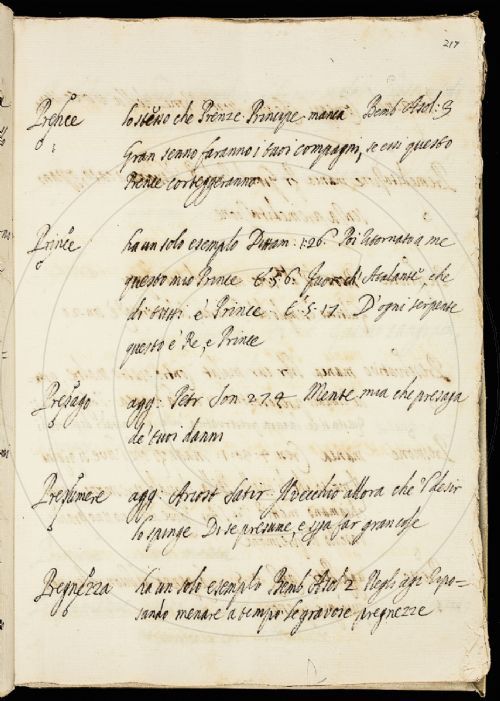 217
Prence lo stesso che Prenze Principe manca Bemb Asol: 3
Gran senno faranno i tuoi compagni, se essi questo
Prence corteggeranno
Prince ha un solo esempio Dittam: 1.26. Poi ritornato a me
questo mio Prince E 5.6. fuor d'Atalante, che
di tutti è Prince E 5.17. D'ogni serpente
questo è Re, e Prince
Presago agg: Petr Son. 274 Mente mia che presaga
de' tuoi danni
Presumere agg: Ariost Satir. Il vecchio allora che 'l desir
lo spinge Di se presume, e spa far gran cose
Pregnezza ha un solo esempio Bemb Asol 2 Negli agi riposando
menare a tempo le gravose pregnezze